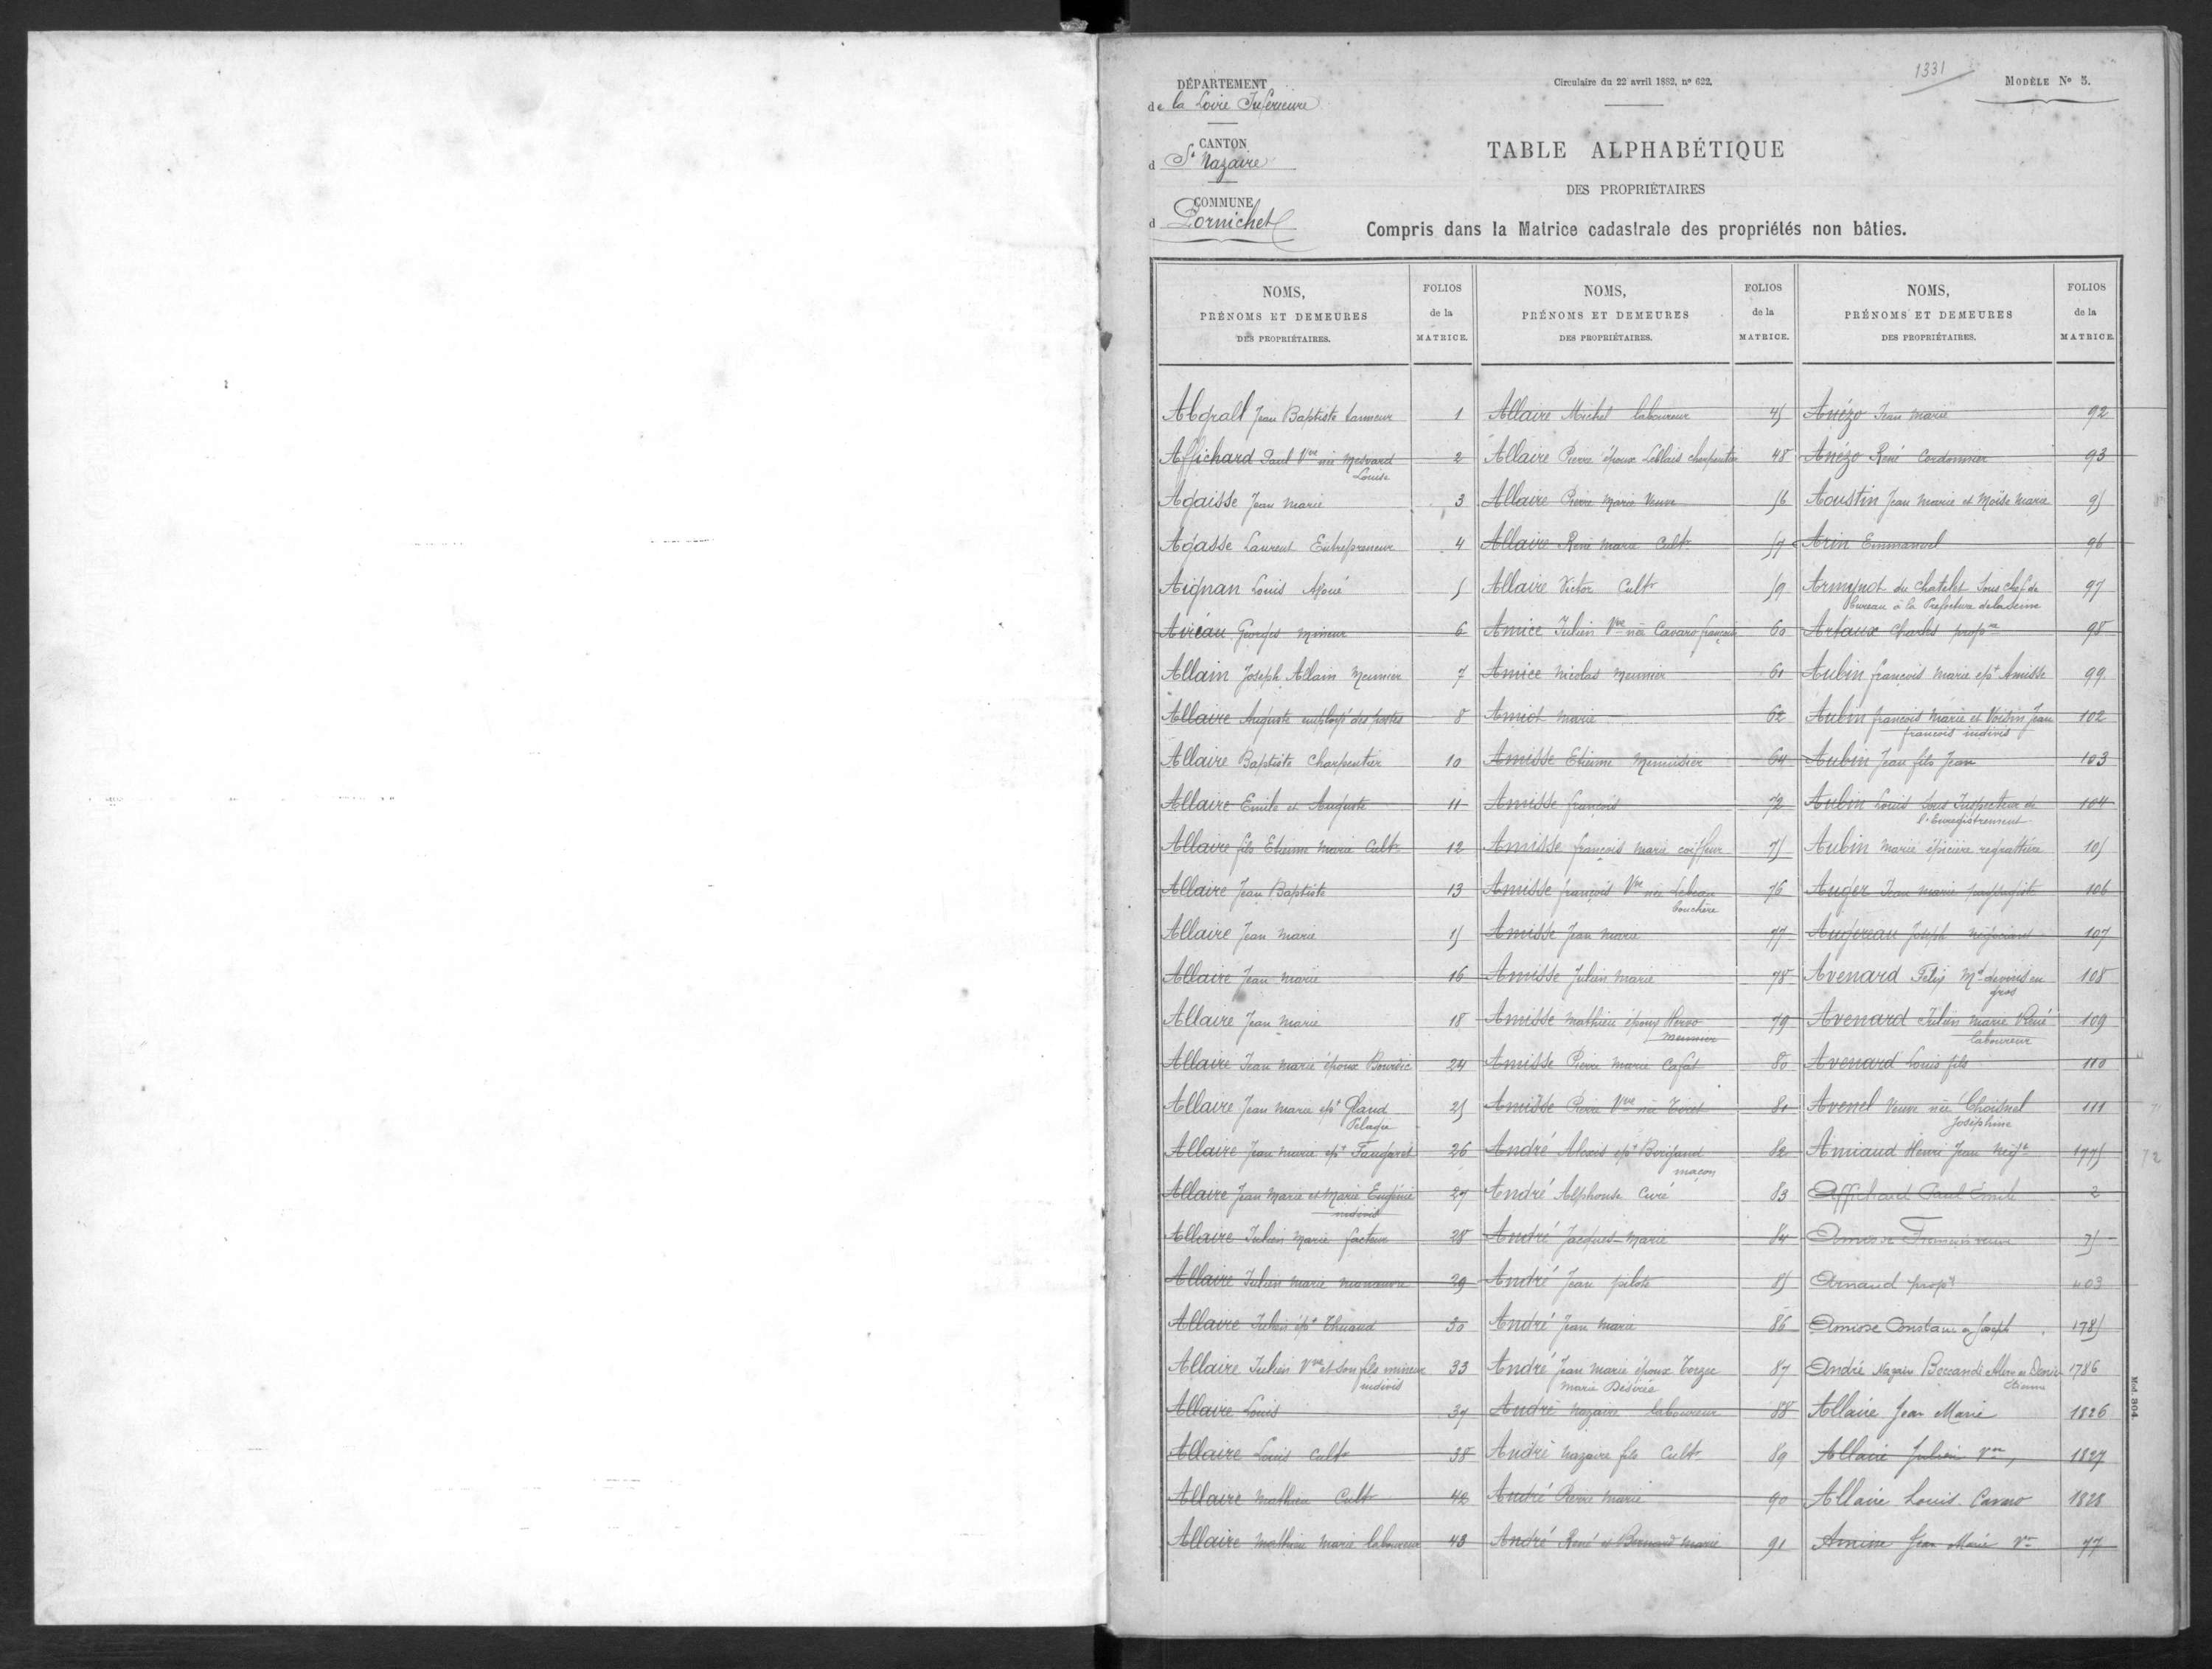 DÉPARTEMENT
de la Loire Inférieure
CANTON
d St Nazaire
COMMUNE
d Pornichet
Circulaire du 22 avril 1882, n° 622.
1331
MODÈLE N° 5.
TABLE ALPHABÉTIQUE
DES PROPRIÉTAIRES
Compris dans la Matrice cadastrale des propriétés non bâties.
NOMS,
PRÉNOMS ET DEMEURES
DES PROPRIÉTAIRES.
FOLIOS
de la
MATRICE.
Abgrall Jean Baptiste tanneur 1
Affichard Paul Vve née Medvard 2
Louise
Agaisse Jean Marie 3
Agasse Laurent Entrepreneur 4
Aignan Louis Avoué 5
Aireau Georges Mineur 6
Allain Joseph Allain Meunier 7
Allaire Auguste employé des postes 8
Allaire Baptiste Charpentier 10
Allaire Emile et Auguste 11
Allaire fils Etienne Marie Cultr 12
Allaire Jean Baptiste 13
Allaire Jean Marie 15
Allaire Jean Marie 16
Allaire Jean Marie 18
Allaire Jean Marie époux Bourdic 24
Allaire Jean Marie ept Glaud 25
Pélagie
Allaire Jean Marie ept Faugaret 26
Allaire Jean Marie et Marie Eugénie 27
indivis
Allaire Julien Marie facteur 28
Allaire Julien Marie manœuvre 29
Allaire Julien ept Thuaud 30
Allaire Julien Vve et son fils mineur 33
indivis
Allaire Louis 37
Allaire Louis Cultr 38
Allaire Mathieu Cult 42
Allaire Mathieu Marie laboureur 43
NOMS,
PRÉNOMS ET DEMEURES
DES PROPRIÉTAIRES.
FOLIOS
de la
MATRICE.
Allaire Michel laboureur 45
Allaire Pierre époux Leblais charpentier 48
Allaire Pierre Marie Veuve 56
Allaire René Marie Cultr 57
Allaire Victor Cultr 59
Amice Julien Vve née Cavaro françoise 60
Amice Nicolas Meunier 61
Amiot Marie 62
Amisse Etienne Menuisier 64
Amisse françois 72
Amisse françois Marie coiffeur 75
Amisse françois Vve née Lebeau 76
bouchère
Amisse Jean Marie 77
Amisse Julien Marie 78
Amisse Mathieu époux Hervo 79
meunier
Amisse Pierre Marie 80
Amisse Pierre Vve née 81
André Alexis ept 82
maçon
André Alphonse Curé 83
André Jacques-Marie 84
André Jean pilote 85
André Jean Marie 86
André Jean Marie époux 87
Marie Désirée
André Nazaire laboureur 88
André Nazaire fils Cultr 89
André Pierre Marie 90
André René et Bernard Marie 91
NOMS,
PRÉNOMS ET DEMEURES
DES PROPRIÉTAIRES.
FOLIOS
de la
MATRICE.
Anézo Jean Marie 92
Anézo René Cordonnier 93
Aoustin Jean Marie et Moïse Marie 95
Arin Emmanuel 96
Armynot du Chatelet Sous chef de 97
Bureau à la Préfecture de la Seine
Artaux Charles propre 98
Aubin françois Marie ept Amisse 99
Aubin françois Marie et Voisin Jean 102
françois indivis
Aubin Jean fils Jean 103
Aubin Louis Sous Inspecteur de 104
l'Enregistrement
Aubin Marie épicière regrattière 105
Auger Jean Marie 106
Augereau Joseph négociant 107
Avenard Félix Md de vins en 108
gros
Avenard Julien Marie René 109
laboureur
Avenard Louis fils 110
Avenel Veuve née Choisnel 111
Joséphine
Amiaud Henri Jean Negt 1775
Affichard Paul Emile 2
Amisse François veuve 75
Arnaud propre 403
Amisse Constance Joseph 1785
André Nazaire 1786
Etienne
Allaire Jean Marie 1826
Allaire Julien Vve 1827
Allaire Louis Cavaro 1828
Amisse Jean Marie Vve 77
72
Mod. 304.